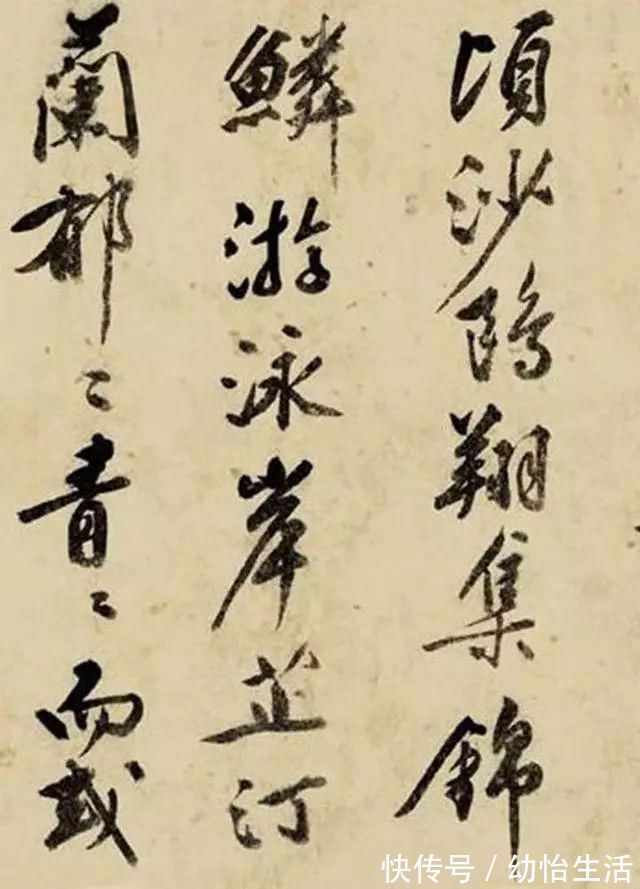 頃沙鷗翔集錦
鱗游泳岸芷汀
蘭郁〻青〻而或
快传号 / 幼怡生活